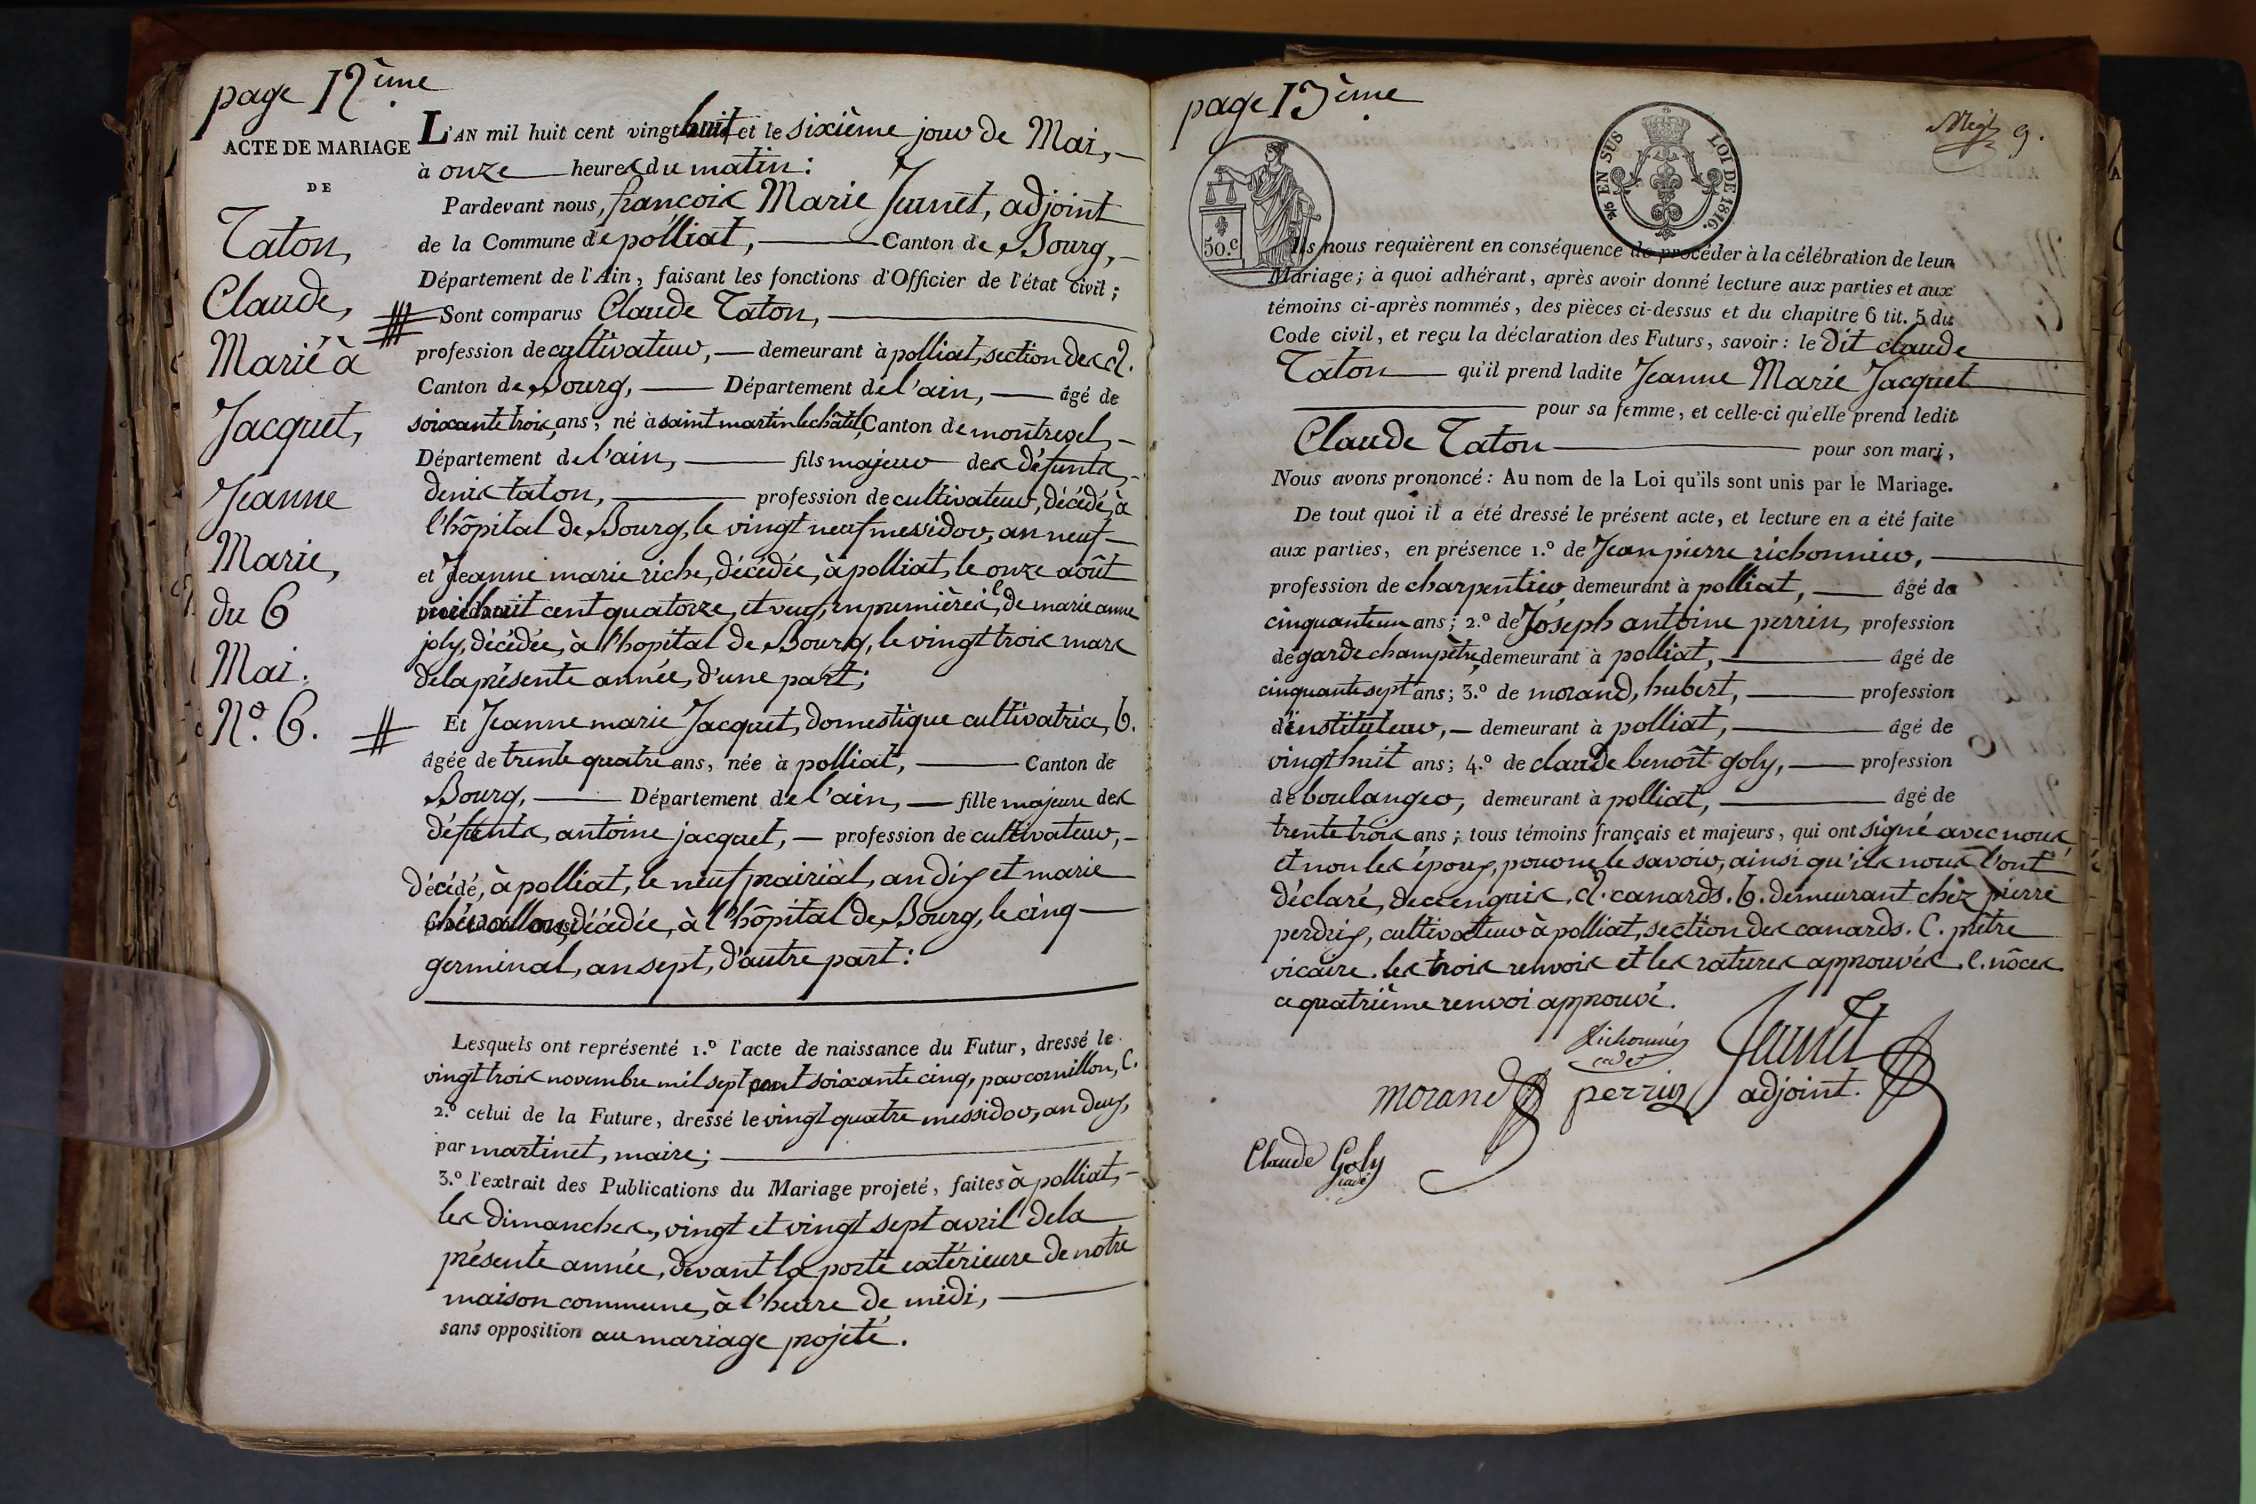 page 12ème
ACTE DE MARIAGE
DE
Taton,
Claude,
Marié à
Jacquet,
Jeanne
Marie,
du 6
Mai.
N.º 6.
L'AN mil huit cent vingt huit et le sixième jour de Mai,
à onze heures du matin :
Pardevant nous, françois Marie Jeunet, adjoint
de la Commune de polliat, Canton de Bourg,
Département de l'Ain, faisant les fonctions d'Officier de l'état civil ;
Sont comparus Claude Taton,
profession de cultivateur, demeurant à polliat, section des a.
Canton de Bourg, Département de l'ain, âgé de
soixante trois ans, né à saint martin le châtel, Canton de montrevel,
Département de l'ain, fils majeur des défunts
denis taton, profession de cultivateur, décédé, à
l'hôpital de Bourg, le vingt neuf messidor, an neuf
et Jeanne marie riche, décédée, à polliat, le onze août
mil huit cent quatorze, et veuf, en premières e, de marie anne
joly, décédée, à l'hopital de Bourg, le vingt trois mars
de la présente année, d'une part ;
Et Jeanne marie Jacquet, domestique cultivatrice, b.
âgée de trente quatre ans, née à polliat, Canton de
Bourg, Département de l'ain, fille majeure des
défunts, antoine jacquet, profession de cultivateur,
décédé, à polliat, le neuf prairial, an dix et marie
chevallon, décédée, à l'hôpital de Bourg, le cinq
germinal, an sept, d'autre part :
Lesquels ont représenté 1.º l'acte de naissance du Futur, dressé le
vingt trois novembre mil sept cent soixante cinq, par cornillon, C.
2.º celui de la Future, dressé le vingt quatre messidor, an deux,
par martinet, maire ;
3.º l'extrait des Publications du Mariage projeté, faites à polliat,
les dimanches, vingt et vingt sept avril de la
présente année, devant la porte extérieure de notre
maison commune, à l'heure de midi,
sans opposition au mariage projeté.
page 13ème
9.
EN SUS
LOI DE 1816.
50.c
Ils nous requièrent en conséquence de procéder à la célébration de leur
Mariage ; à quoi adhérant, après avoir donné lecture aux parties et aux
témoins ci-après nommés, des pièces ci-dessus et du chapitre 6 tit. 5 du
Code civil, et reçu la déclaration des Futurs, savoir : le dit claude
Taton qu'il prend ladite Jeanne Marie Jacquet
pour sa femme, et celle-ci qu'elle prend ledit
Claude Taton pour son mari,
Nous avons prononcé : Au nom de la Loi qu'ils sont unis par le Mariage.
De tout quoi il a été dressé le présent acte, et lecture en a été faite
aux parties, en présence 1.º de Jean pierre richonnier,
profession de charpentier demeurant à polliat, âgé de
cinquante un ans ; 2.º de Joseph antoine perrin, profession
de garde champêtre, demeurant à polliat, âgé de
cinquante sept ans ; 3.º de morand, hubert, profession
d'instituteur, demeurant à polliat, âgé de
vingt huit ans ; 4.º de claude benoît goly, profession
de boulanger, demeurant à polliat, âgé de
trente trois ans ; tous témoins français et majeurs, qui ont signé avec nous,
et non les époux, pour ne le savoir, ainsi qu'ils nous l'ont
déclaré, de ce enquis, a. canards. b. demeurant chez pierre
perdrix, cultivateur à polliat, section des canards. C. prêtre
vicaire. les trois renvois et les ratures approuvés. e. nôces
ce quatrième renvoi approuvé.
Richonnier
cadet
Jeunet
adjoint.
morand
perrin
Claude Goly
cadet